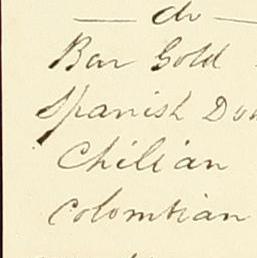 — do —
Bar Gold
Spanish Dou
Chilian
Colombian